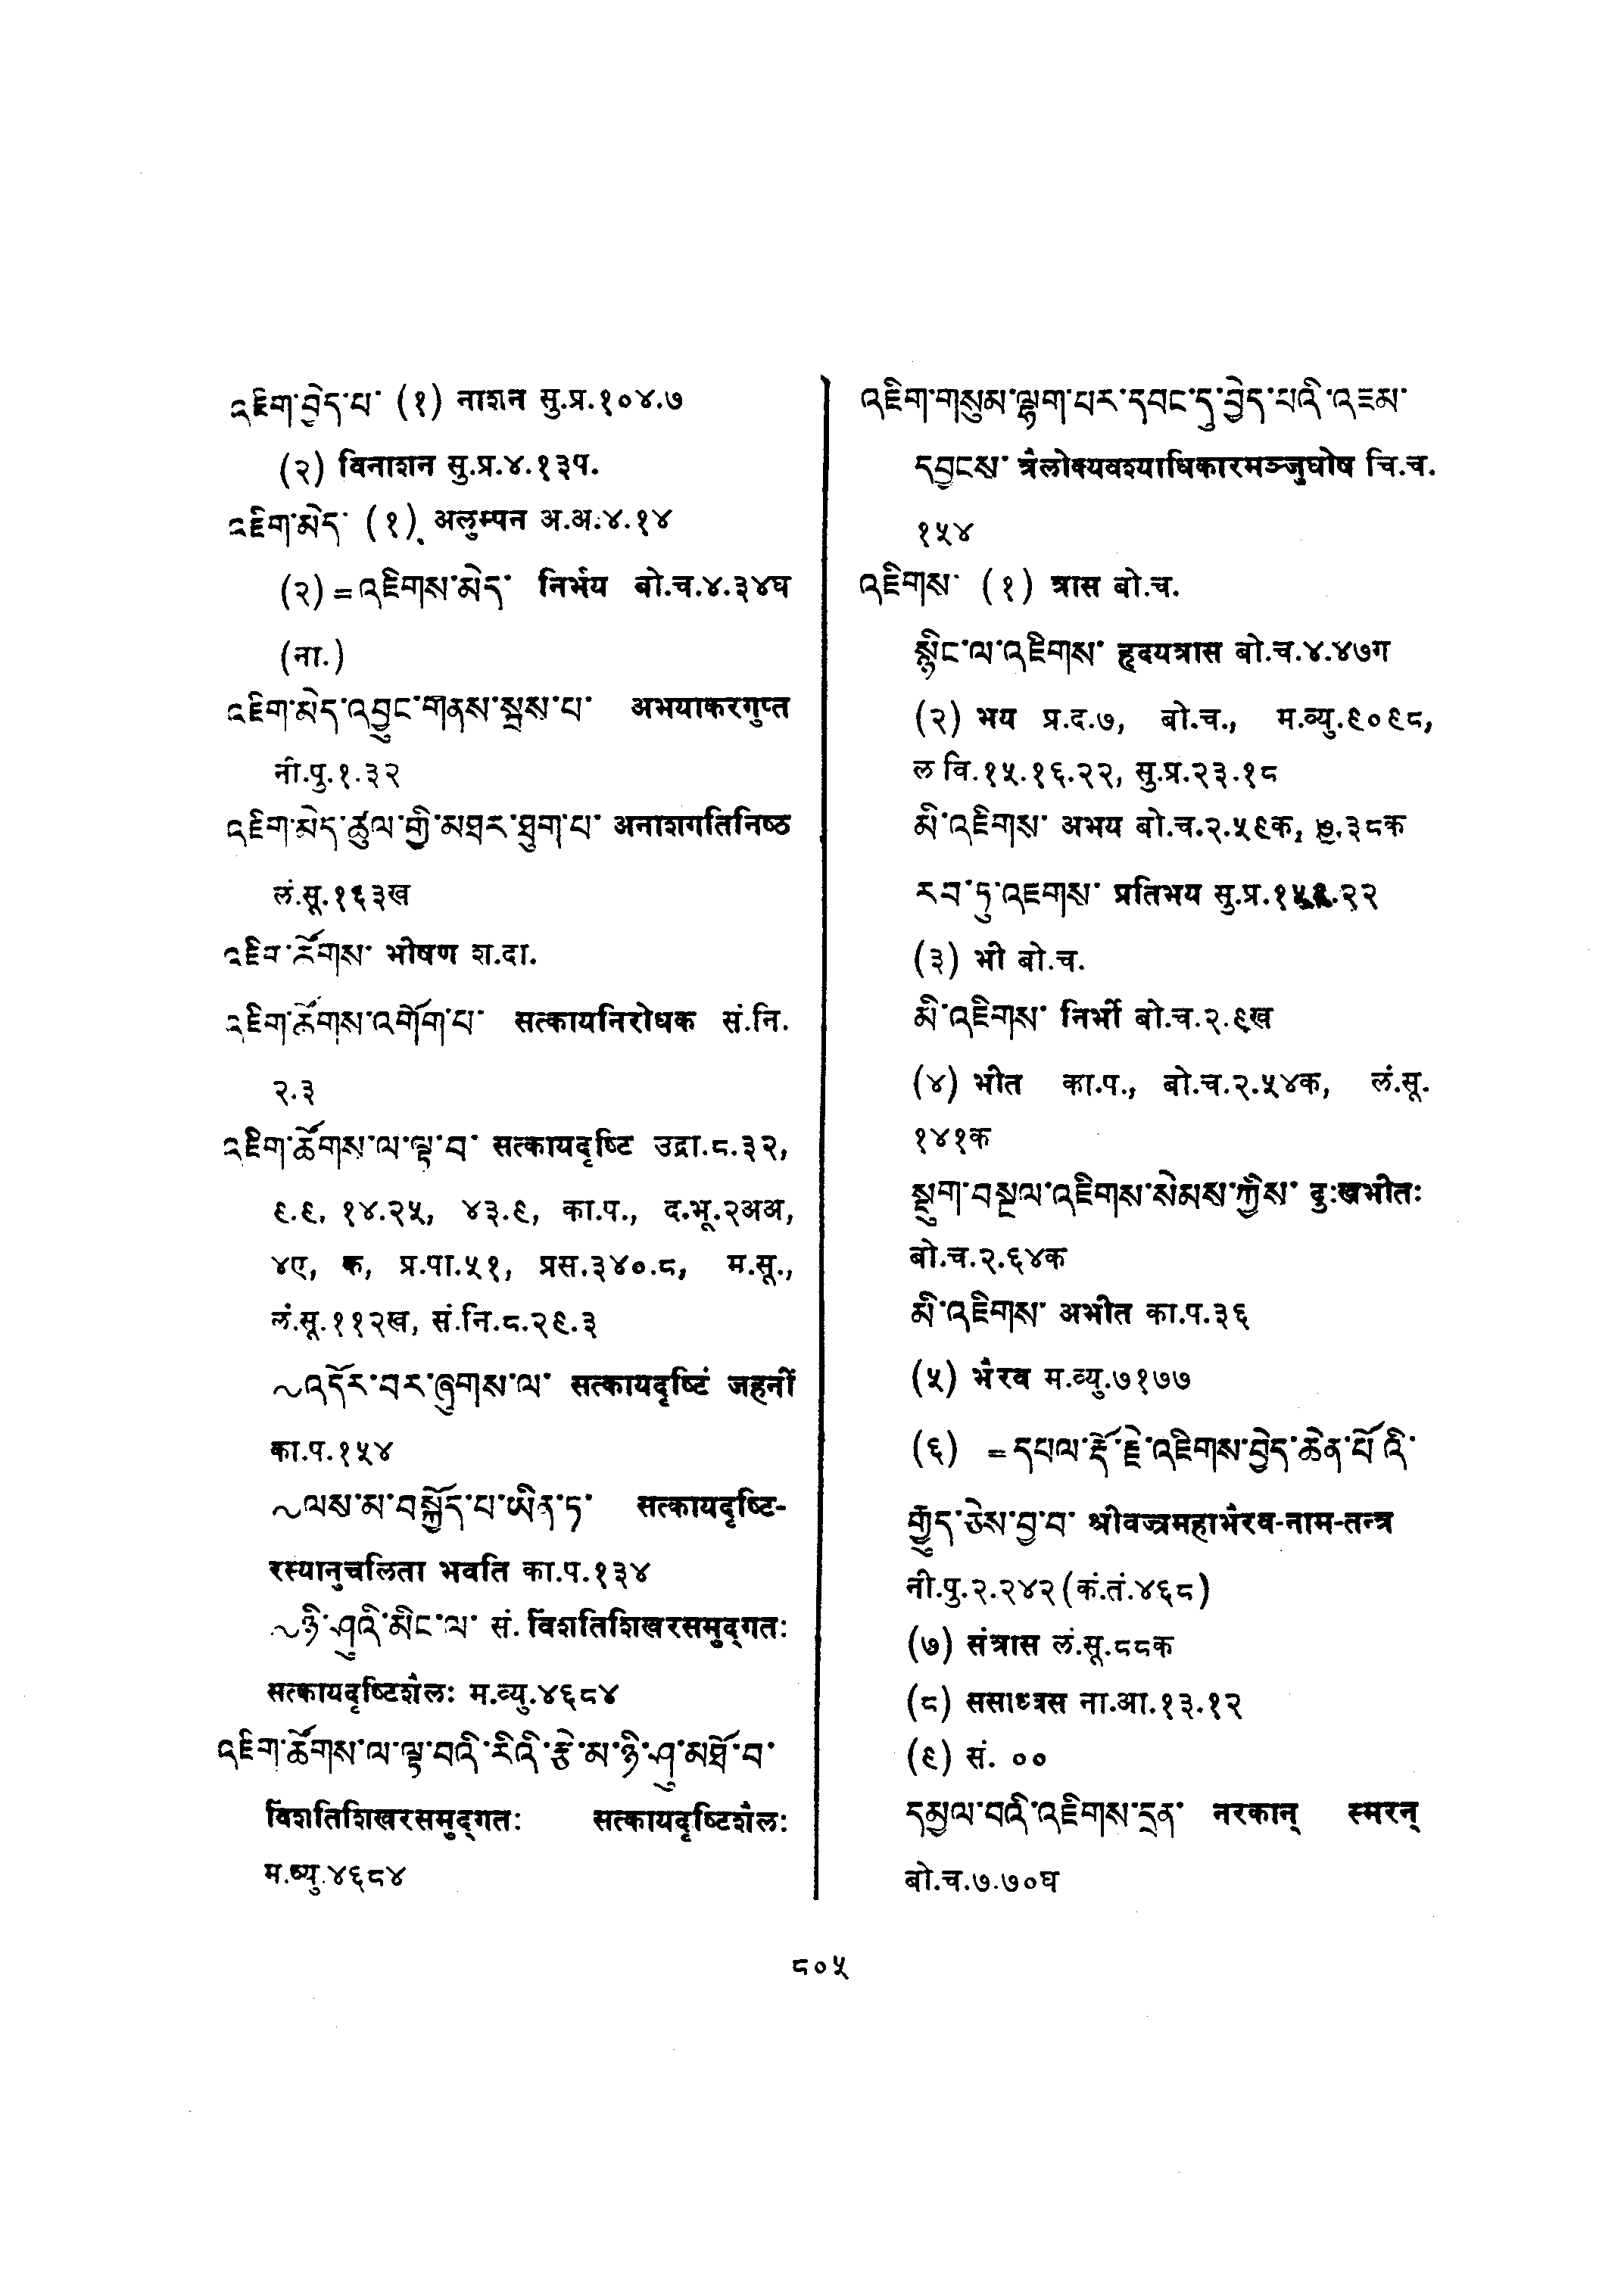 འཇིག་བྱེད་པ་ (१) नाशन सु.प्र.१०४.७
(२) विनाशन सु.प्र.४.१३प.
འཇིག་མེད་ (१) अलुम्पन अ.अ.४.१४
(२) = འཇིགས་མེད་ निर्भय बो.च.४.३४घ
(ना.)
འཇིག་མེད་འབྱུང་གནས་སྦས་པ་ अभयाकरगुप्त
नी.पु.१.३२
འཇིག་མེད་ཚུལ་གྱི་མཐར་ཐུག་པ་ अनाशगतिनिष्ठ
लं.सू.१६३ख
འཇིག་ཚོགས་ भीषण श.दा.
འཇིག་ཚོགས་འགོག་པ་ सत्कायनिरोधक सं.नि.
२.३
འཇིག་ཚོགས་ལ་ལྟ་བ་ सत्कायदृष्टि उद्रा.८.३२,
९.९, १४.२५, ४३.९, का.प., द.भू.२अअ,
४ए, क, प्र.पा.५१, प्रस.३४०.८, म.सू.,
लं.सू.११२ख, सं.नि.८.२९.३
~འདོར་བར་ཞུགས་ལ་ सत्कायदृष्टिं जहनीं
का.प.१५४
~ལས་མ་བསྐྱོད་པ་ཡིན་ཏ་ सत्कायदृष्टि-
रस्यानुचलिता भवति का.प.१३४
~ཉི་ཤུའི་མིང་ལ་ सं. विंशतिशिखरसमुद्गतः
सत्कायदृष्टिशैलः म.व्यु.४६८४
འཇིག་ཚོགས་ལ་ལྟ་བའི་རིའི་རྩེ་མ་ཉི་ཤུ་མཐོ་བ་
विंशतिशिखरसमुद्गतः सत्कायदृष्टिशैलः
म.व्यु.४६८४
འཇིག་གསུམ་ལྷག་པར་དབང་དུ་བྱེད་པའི་འཇམ་
དབྱངས་ त्रैलोक्यवश्याधिकारमञ्जुघोष चि.च.
१५४
འཇིགས་ (१) त्रास बो.च.
སྙིང་ལ་འཇིགས་ हृदयत्रास बो.च.४.४७ग
(२) भय प्र.द.७, बो.च., म.व्यु.९०९८,
ल वि.१५.१६.२२, सु.प्र.२३.१८
མི་འཇིགས་ अभय बो.च.२.५९क, ७.३८क
རབ་ཏུ་འཇགས་ प्रतिभय सु.प्र.१५९.२२
(३) भी बो.च.
མི་འཇིགས་ निर्भी बो.च.२.९ख
(४) भीत का.प., बो.च.२.५४क, लं.सू.
१४१क
སྡུག་བསྔལ་འཇིགས་སེམས་ཀྱིས་ दुःखभीतः
बो.च.२.६४क
མི་འཇིགས་ अभीत का.प.३६
(५) भैरव म.व्यु.७१७७
(६) = དཔལ་རྡོ་རྗེ་འཇིགས་བྱེད་ཆེན་པོའི་
རྒྱུད་ཅེས་བྱ་བ་ श्रीवज्रमहाभैरव-नाम-तन्त्र
नी.पु.२.२४२(कं.तं.४६८)
(७) संत्रास लं.सू.८८क
(८) ससाध्त्रस ना.आ.१३.१२
(९) सं. ००
དམྱལ་བའི་འཇིགས་དྲན་ नरकान् स्मरन्
बो.च.७.७०घ
८०५